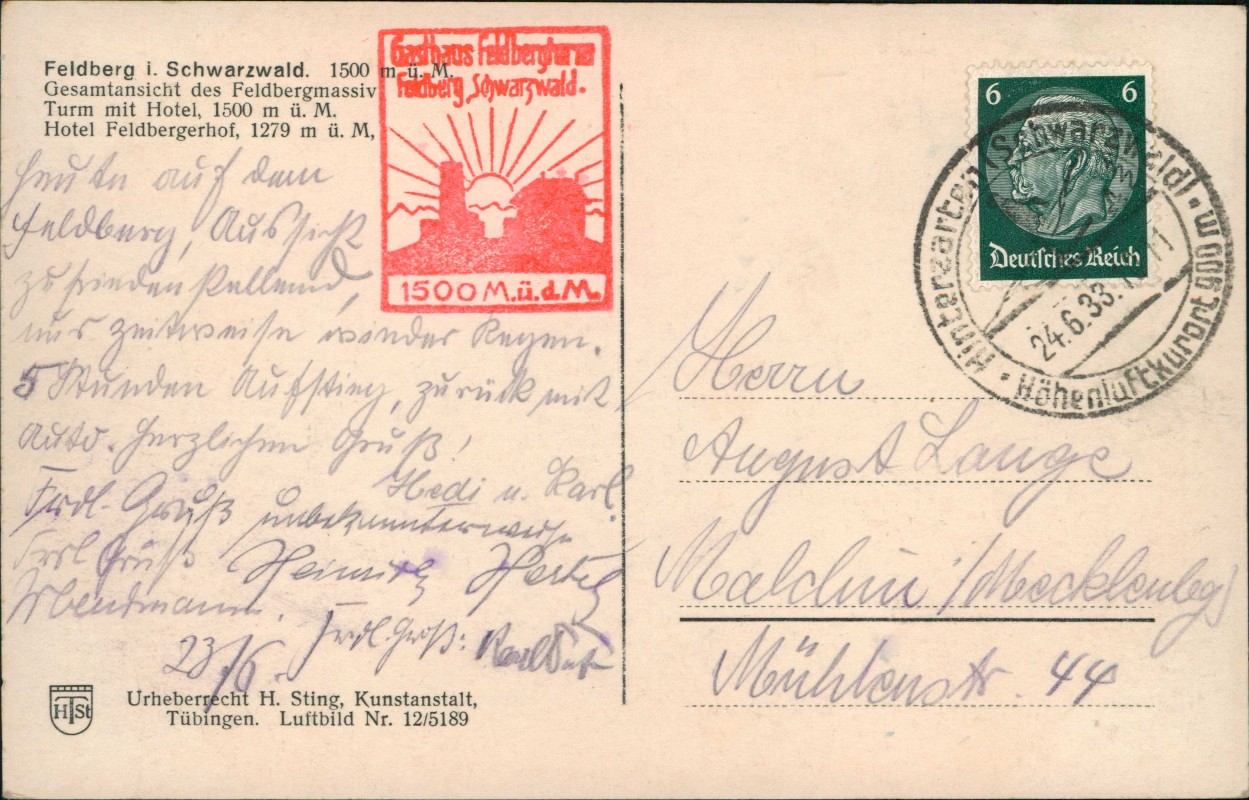 Feldberg i. Schwarzwald. 1500 m ü. M.
Gesamtansicht des Feldbergmassiv
Turm mit Hotel, 1500 m ü. M.
Hotel Feldbergerhof, 1279 m ü. M,
Gasthaus
Feldberg, Schwarzwald.
1500 M.ü.d.M.
6 6
Deutsches Reich
Hinterzarten (Schwarzwald) · 900 m
24.6.33.
Höhenluftkurort
Heute auf dem
Feldberg, Aussicht
zufriedenstellend,
nur zeitweise wieder Regen.
5 Stunden Aufstieg, zurück mit
Auto. Herzlichen Gruß!
Hedi u. Karl.
Frdl. Gruß unbekannterweise
Frdl Gruß Heinrich
Frdl. Gruß: Karl
23/6.
Herrn
August Lange
Malchin / Mecklenbg
Mühlenstr. 44
HSt
Urheberrecht H. Sting, Kunstanstalt,
Tübingen. Luftbild Nr. 12/5189